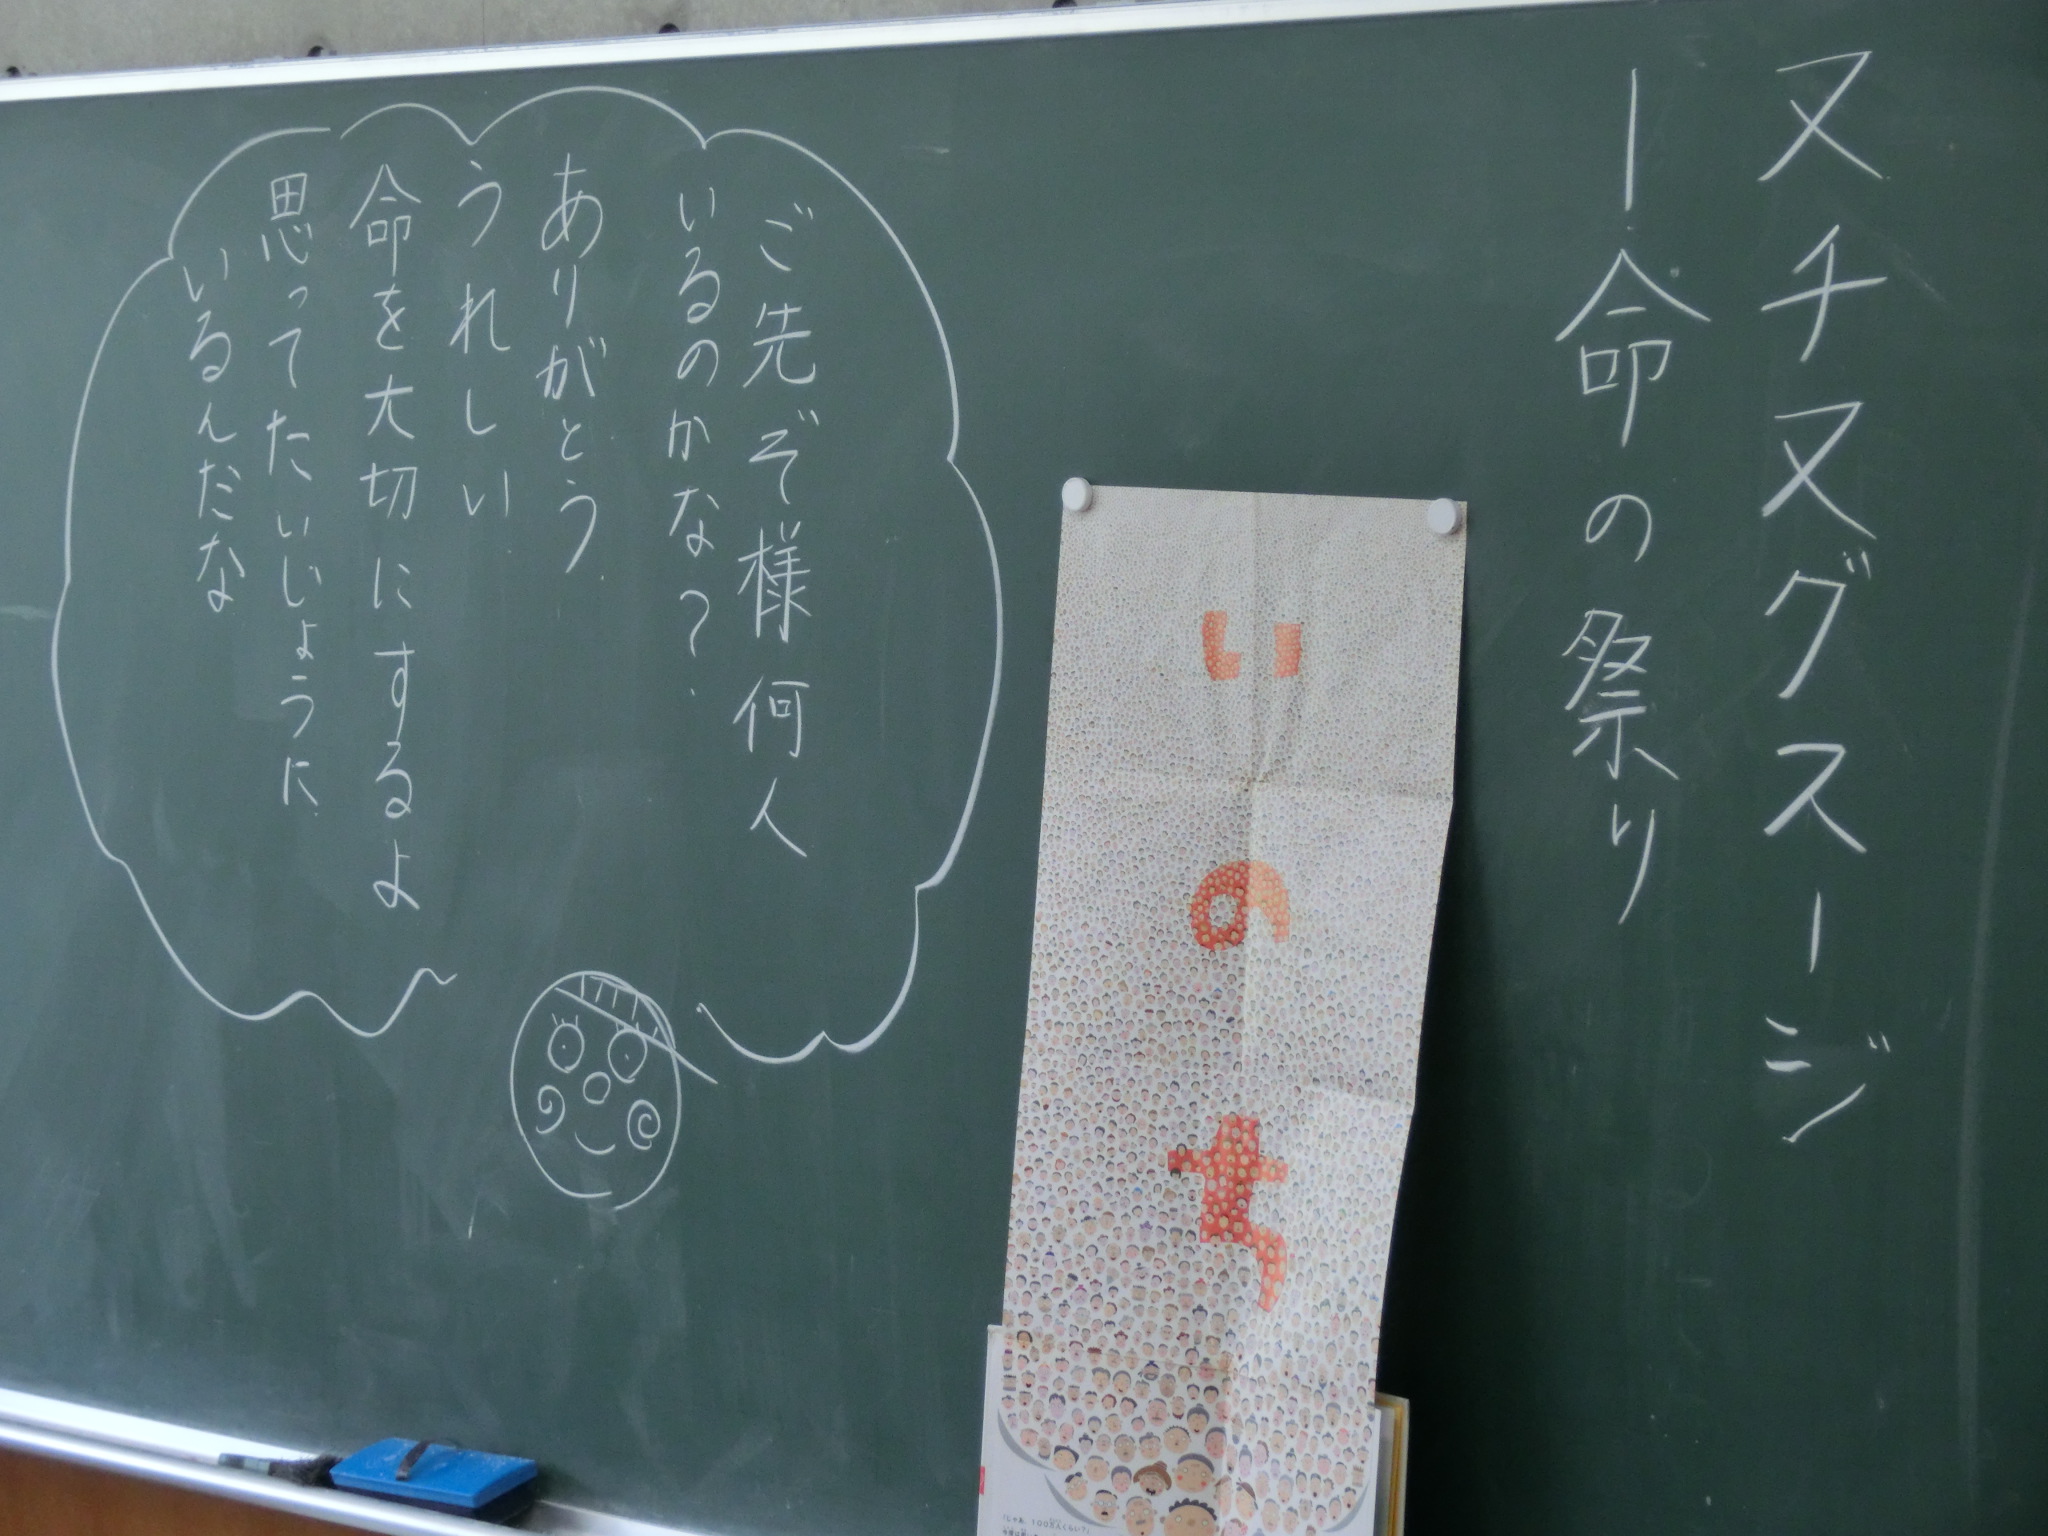 ヌチヌグスージ
ー命の祭り
いのち
ご先ぞ様何人
いるのかな?
ありがとう
うれしい
命を大切にするよ
思ってたいじょうに
いるんだな
「じゃあ、100万人くらい?」